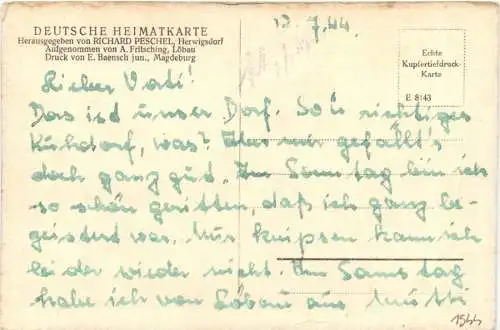 DEUTSCHE HEIMATKARTE
Herausgegeben von RICHARD PESCHEL, Herwigsdorf
Aufgenommen von A. Fritsching, Löbau
Druck von E. Baensch jun., Magdeburg
7.44
Echte
Kupfertiefdruck-
Karte
E 8143
Lieber Vati!
Das ist unser Dorf. So'n richtiges
Kuhdorf, was? Aber mir gefällt's
doch ganz gut. Am Sonntag bin ich
so schön geritten, daß ich ganz be-
geistert war. Nur knipsen kann ich
leider wieder nicht. Am Samstag
habe ich von Löbau aus Mutti
1944